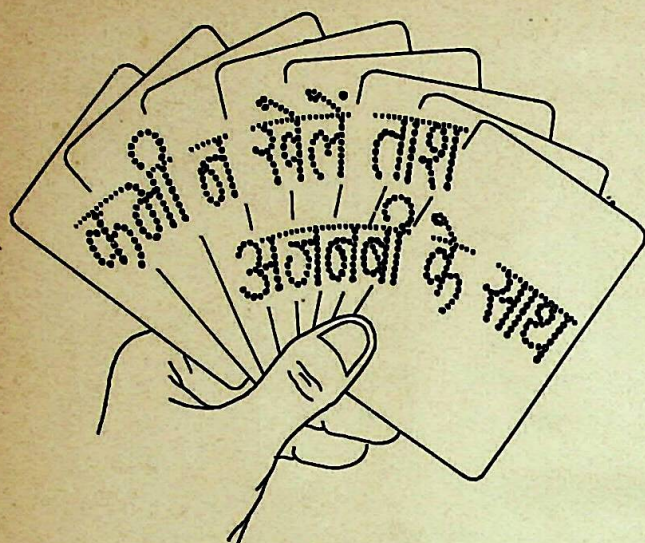 कभी न खेलें ताश
अजनबी के साथ